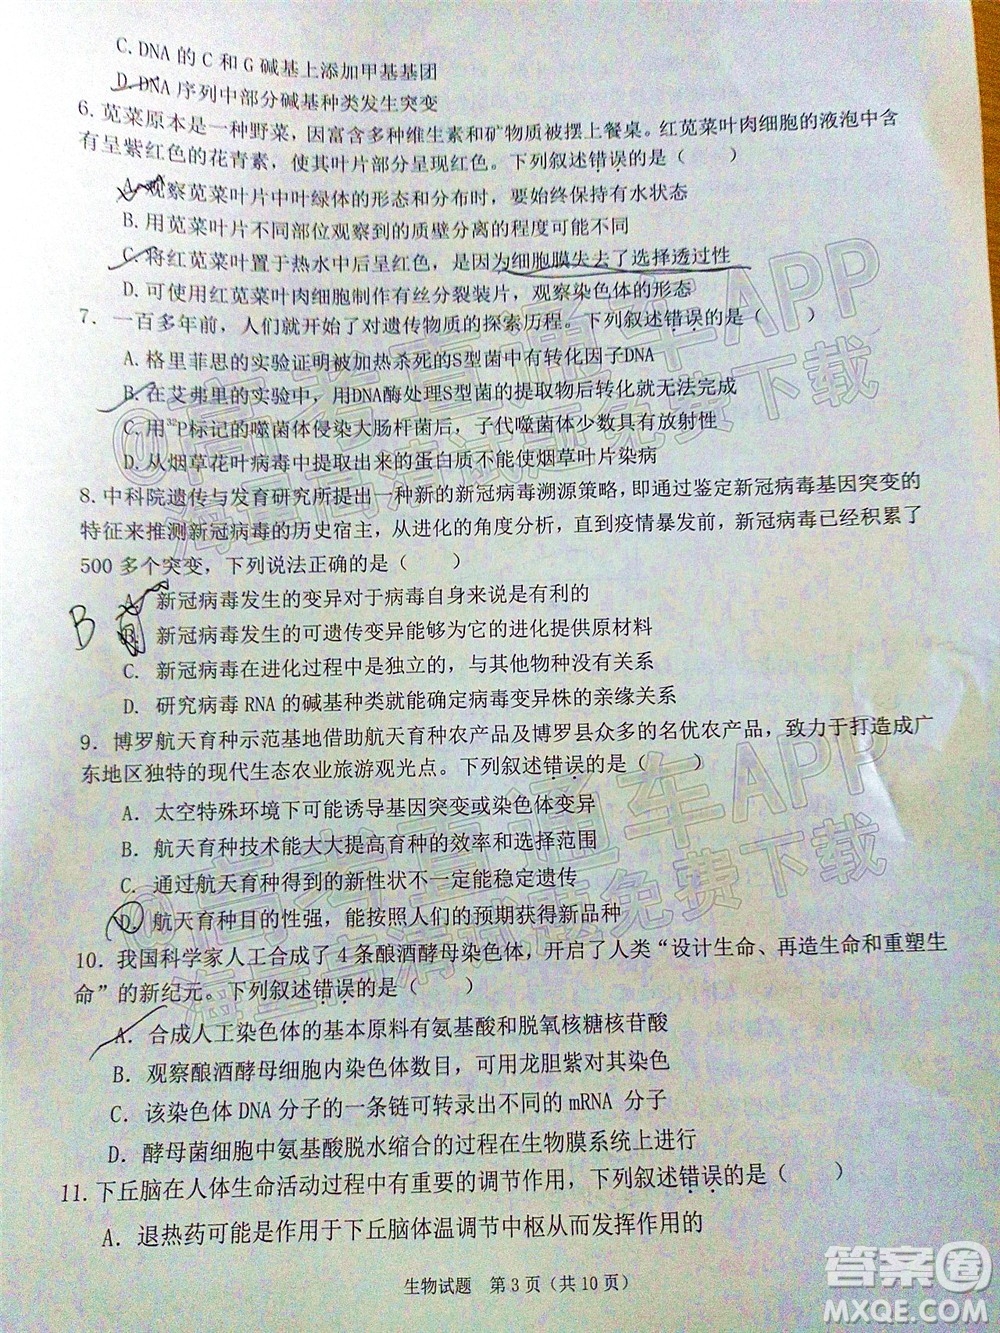 C. DNA 的 C 和 G 碱基上添加甲基基团
D. DNA 序列中部分碱基种类发生突变
6. 苋菜原本是一种野菜，因富含多种维生素和矿物质被摆上餐桌。红苋菜叶肉细胞的液泡中含
有呈紫红色的花青素，使其叶片部分呈现红色。下列叙述错误的是（　　）
A. 观察苋菜叶片中叶绿体的形态和分布时，要始终保持有水状态
B. 用苋菜叶片不同部位观察到的质壁分离的程度可能不同
C. 将红苋菜叶置于热水中后呈红色，是因为细胞膜失去了选择透过性
D. 可使用红苋菜叶肉细胞制作有丝分裂装片，观察染色体的形态
7. 一百多年前，人们就开始了对遗传物质的探索历程。下列叙述错误的是（　　）
A. 格里菲思的实验证明被加热杀死的S型菌中有转化因子DNA
B. 在艾弗里的实验中，用DNA酶处理S型菌的提取物后转化就无法完成
C. 用³²P标记的噬菌体侵染大肠杆菌后，子代噬菌体少数具有放射性
D. 从烟草花叶病毒中提取出来的蛋白质不能使烟草叶片染病
8. 中科院遗传与发育研究所提出一种新的新冠病毒溯源策略，即通过鉴定新冠病毒基因突变的
特征来推测新冠病毒的历史宿主，从进化的角度分析，直到疫情暴发前，新冠病毒已经积累了
500 多个突变，下列说法正确的是（　　）
A. 新冠病毒发生的变异对于病毒自身来说是有利的
B
B. 新冠病毒发生的可遗传变异能够为它的进化提供原材料
C. 新冠病毒在进化过程中是独立的，与其他物种没有关系
D. 研究病毒 RNA 的碱基种类就能确定病毒变异株的亲缘关系
9. 博罗航天育种示范基地借助航天育种农产品及博罗县众多的名优农产品，致力于打造成广
东地区独特的现代生态农业旅游观光点。下列叙述错误的是（　　）
A. 太空特殊环境下可能诱导基因突变或染色体变异
B. 航天育种技术能大大提高育种的效率和选择范围
C. 通过航天育种得到的新性状不一定能稳定遗传
D. 航天育种目的性强，能按照人们的预期获得新品种
10. 我国科学家人工合成了 4 条酿酒酵母染色体，开启了人类“设计生命、再造生命和重塑生
命”的新纪元。下列叙述错误的是（　　）
A. 合成人工染色体的基本原料有氨基酸和脱氧核糖核苷酸
B. 观察酿酒酵母细胞内染色体数目，可用龙胆紫对其染色
C. 该染色体 DNA 分子的一条链可转录出不同的 mRNA 分子
D. 酵母菌细胞中氨基酸脱水缩合的过程在生物膜系统上进行
11. 下丘脑在人体生命活动过程中有重要的调节作用，下列叙述错误的是（　　）
A. 退热药可能是作用于下丘脑体温调节中枢从而发挥作用的
生物试题　第 3 页（共 10 页）
@高考直通车APP
海量高清试题免费下载
@高考直通车APP
海量高清试题免费下载
答案圈
MXQE.COM